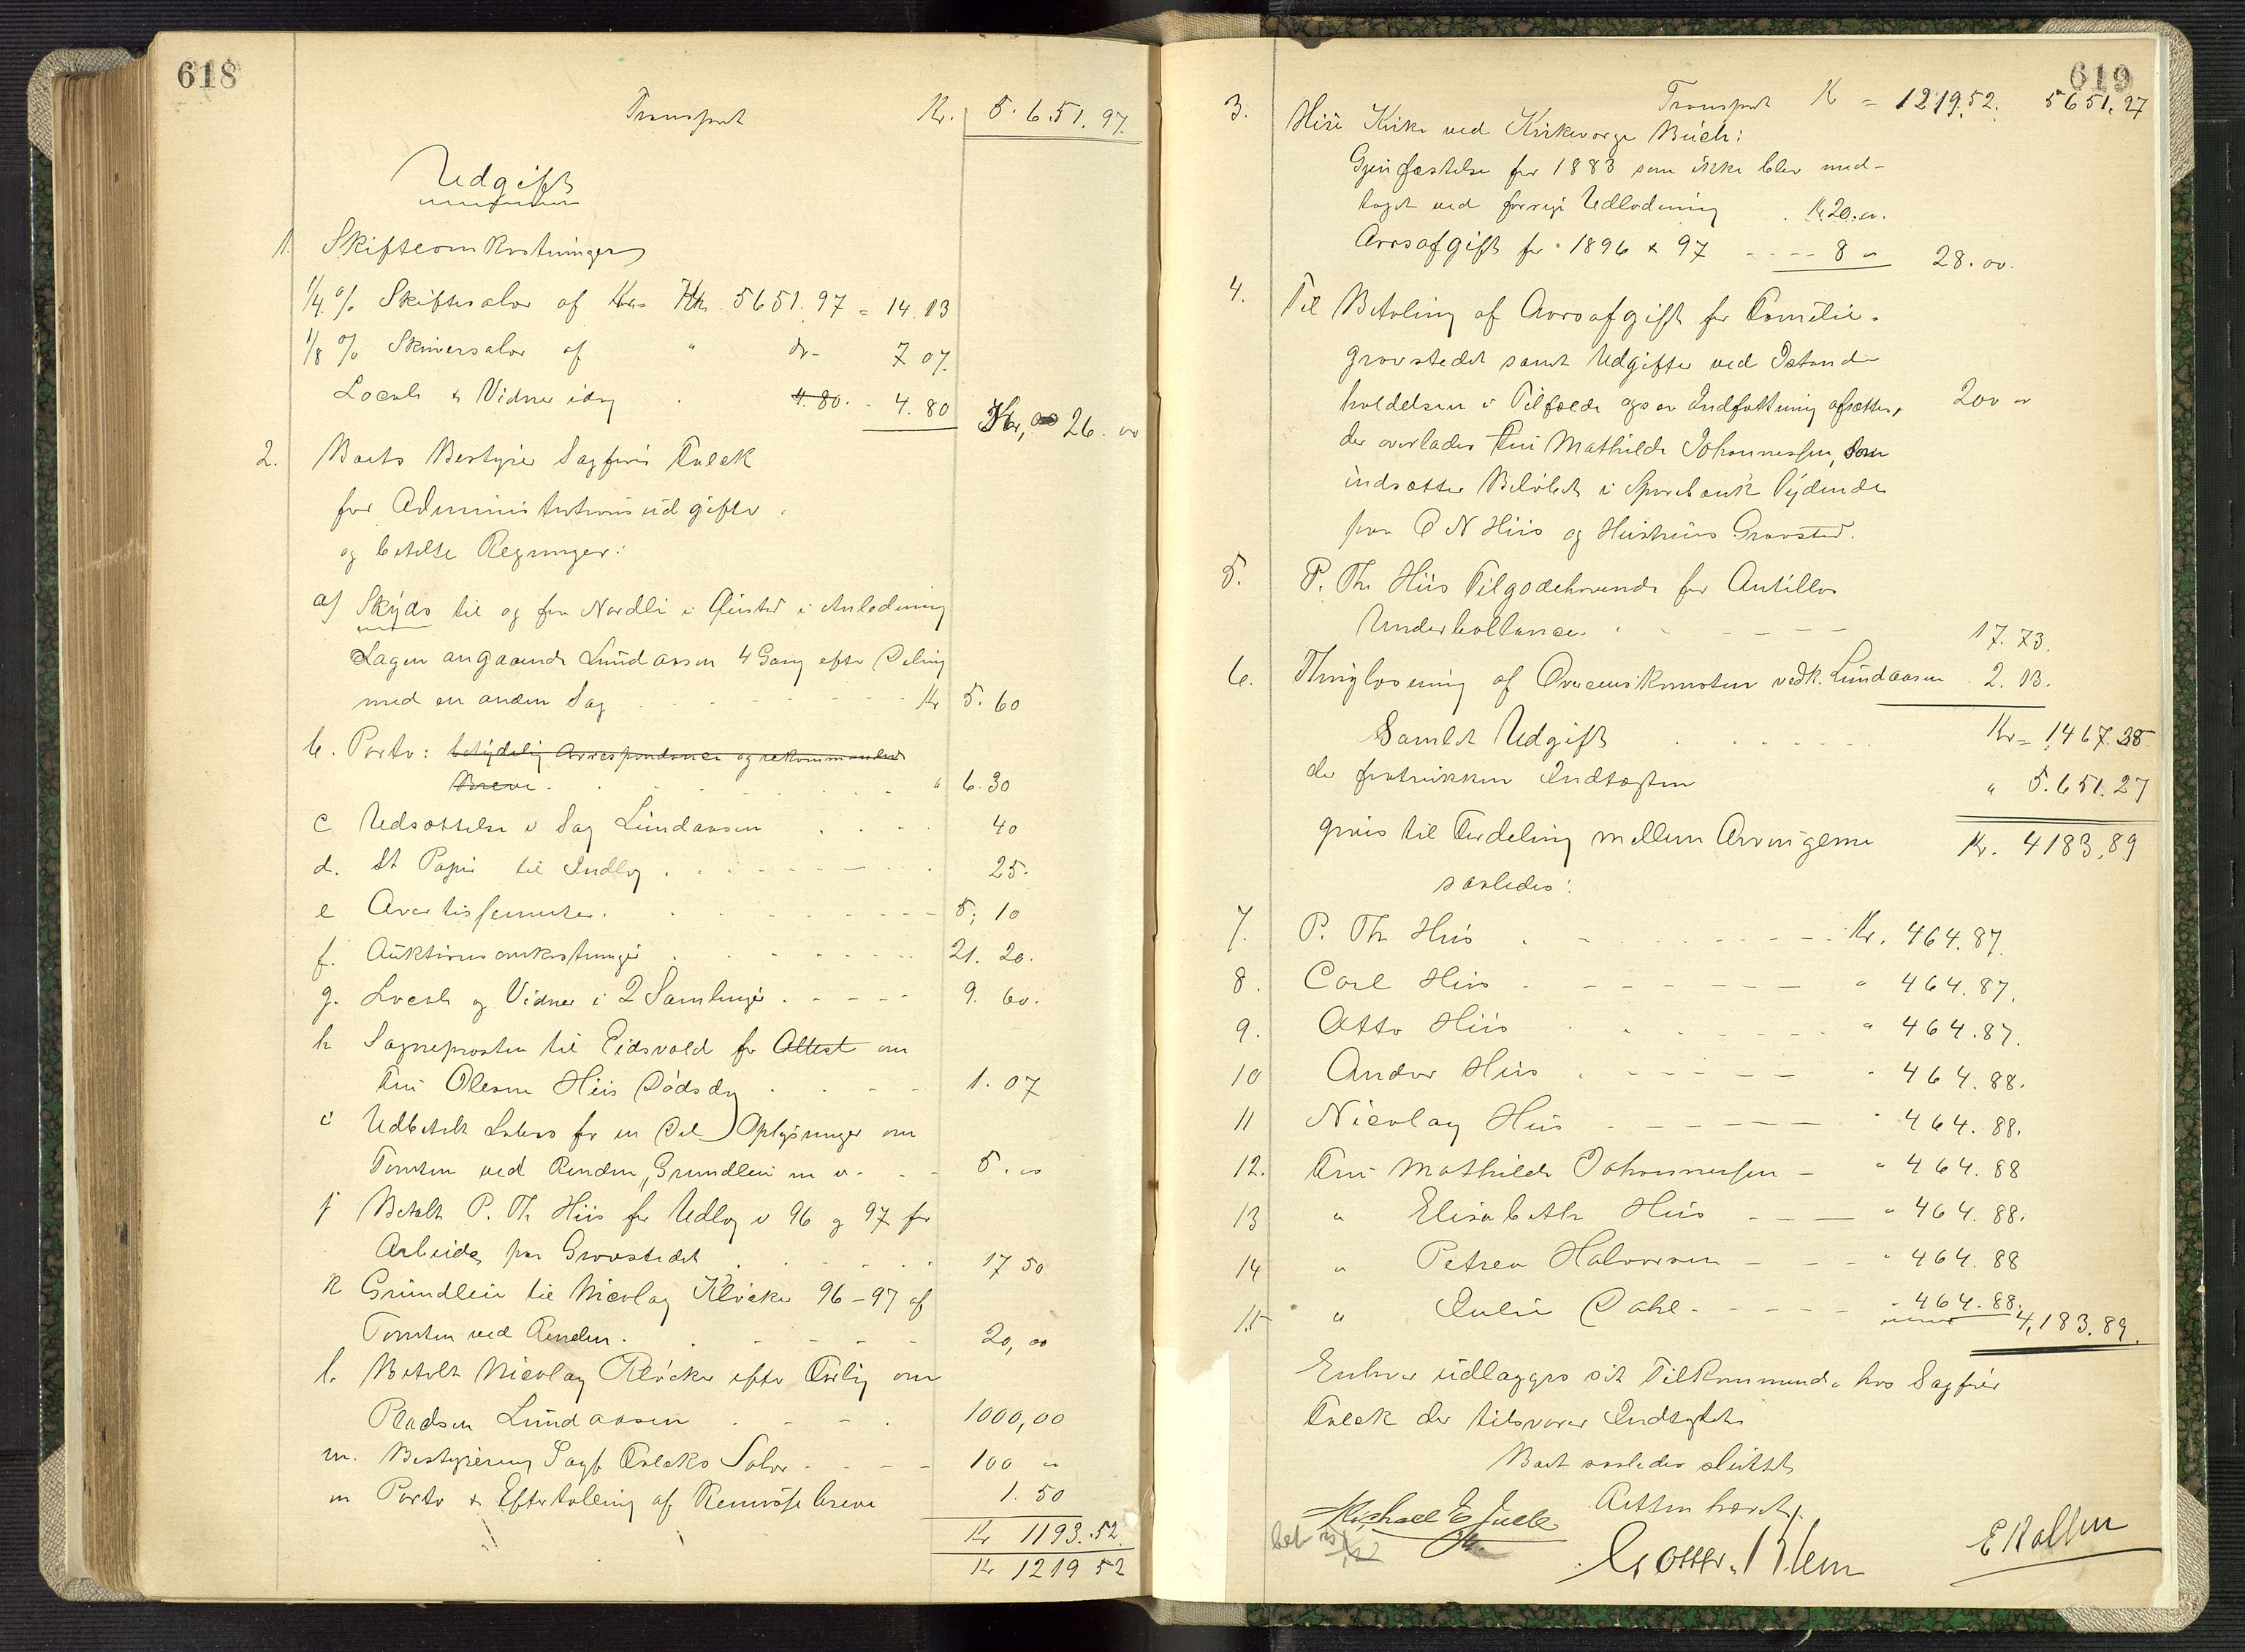 618
Transport Kr. 5.651.97.
Udgift
1. Skifteomkostninger
1/4 % Skiftesalær af Kr. 5651.97 = 14.13
1/8 % Skriversalær af " do- 7 07.
Locale & Vidner idag 4.80. - 4.80 Kr, 26. 00
2. Boets Bestyrer Sagfører Falck
for Administrationsudgifter
og betalte Regninger:
a) Skyds til og fra Nordli i Anledning
Sagen angaaende Lundaasen 4 Gang efter Deling
med en anden Sag Kr 5.60
b. Porto: betydelig Correspondance og rekommanderede
Breve. " 6.30
c Udsættelse i Sag Lundaasen 40
d. St Papir til Indlæg 25.
e Avertissementer. 5; 10
f. Auktionsomkostninger 21. 20.
g. Locale og Vidner i 2 Samlinger 9. 60.
h Sogneprosten til Eidsvold for Attest om
Fru Olesine Hiis Dødsdag 1. 07
i Udbetalt for en Del Oplysninger om
Tomten ved Renden, Grundleie m v. 5. 00
j Betalt P. Th. Hiis for Udlæg i 96 og 97 for
Arbeide paa Gravstedet 17 50
k Grundleie til Nicolay Kløcker 96-97 af
Tomten ved Renden. 20,00
l. Betalt Nicolay Kløcker efter Forlig om
Pladsen Lundaasen 1000,00
m. Bestyreren Sagf. Falcks Salær 100 "
n Porto & Eftertælling af Remissebreve 1. 50
Kr 1193.52.
Kr 1219 52
619
Transport Kr = 1219.52. 5651.27
3. Hiis Kirke ved Kirkeværge Buch:
Gjenfæstelse for 1883 som ikke blev med-
taget ved forrige Udlodning Kr. 20.00.
Aarsafgift for 1896 & 97 8 " 28. 00.
4. Til Betaling af Aarsafgift for Familie-
gravstedet samt Udgifter ved Istand-
holdelsen i Tilfælde ogsaa Indfatning afsættes,
der overlades Fru Mathilde Johannessen, som
indsætter Beløbet i Sparebank lydende
paa O N Hiis og Hustrues Gravsted. 200 "
5. P. Th. Hiis Tilgodehavende for Antillas
Underballance. 17. 73.
6. Thinglæsning af Overenskomsten vedk. Lundaasen 2. 13.
Samlet Udgift Kr = 1,467.38
der fratrukken Indtægten " 5.651.27
giver til Fordeling mellem Arvingerne Kr. 4183,89
saaledes:
7. P. Th Hiis Kr. 464.87.
8. Carl Hiis " 464.87.
9. Otto Hiis " 464.87.
10 Andor Hiis " 464.88.
11 Nicolay Hiis " 464. 88.
12. Fru Mathilde Johannessen " 464. 88
13 " Elisabeth Hiis " 464. 88.
14 " Petrea Halvorsen " 464. 88
15 " Julie Dahl " 464.88. 4,183.89.
Enhver udlægges sit Tilkommende hos Sagfører
Falck der tilsvarer Indtægten
Boet saaledes sluttet
Retten hævet.
Michael E Juell
E Rallem